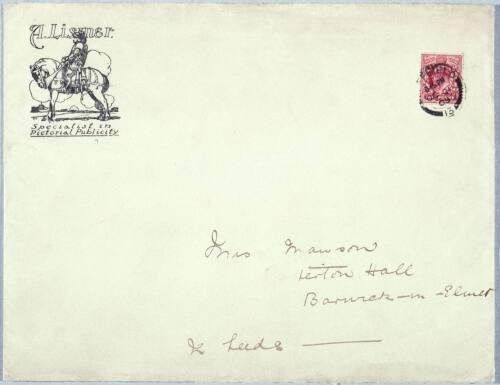 A. Lismer.
Specialist in
Pictorial Publicity
Miss Mawson
Kiddal Hall
Barwick-in-Elmet
Leeds